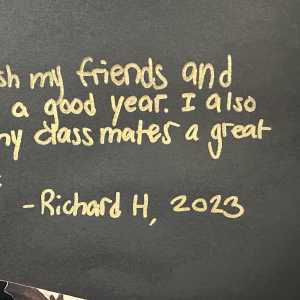 sh my friends and
a good year. I also
my classmates a great
- Richard H, 2023